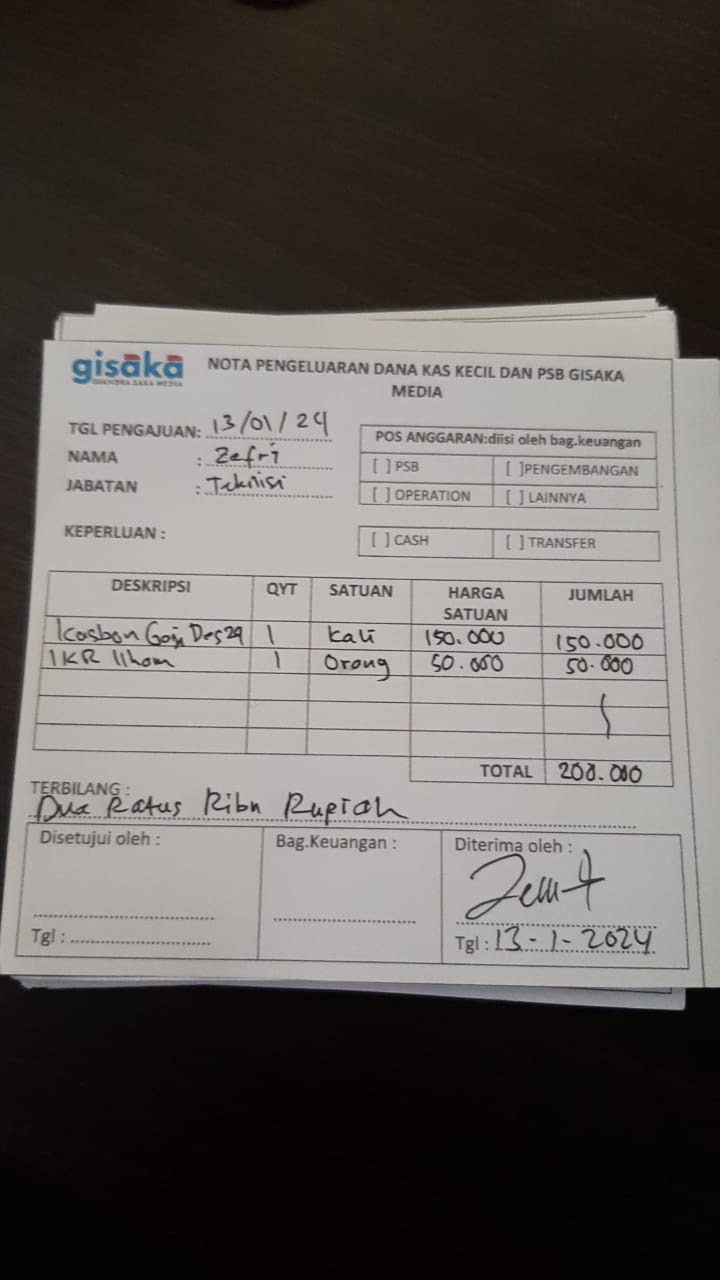 gisaka
NOTA PENGELUARAN DANA KAS KECIL DAN PSB GISAKA
MEDIA
TGL PENGAJUAN: 13/01/24
NAMA : Zefri
JABATAN : Teknisi
POS ANGGARAN:diisi oleh bag.keuangan
[ ] PSB [ ]PENGEMBANGAN
[ ] OPERATION [ ] LAINNYA
KEPERLUAN :
[ ] CASH [ ] TRANSFER
DESKRIPSI QYT SATUAN HARGA SATUAN JUMLAH
Kasbon Gaji Des 1 kali 150.000 150.000
IKR Ilham 1 Orang 50.000 50.000
TOTAL 200.000
TERBILANG :
Dua Ratus Ribu Rupiah
Disetujui oleh : Bag.Keuangan : Diterima oleh :
Tgl : Tgl : 13-1-2024